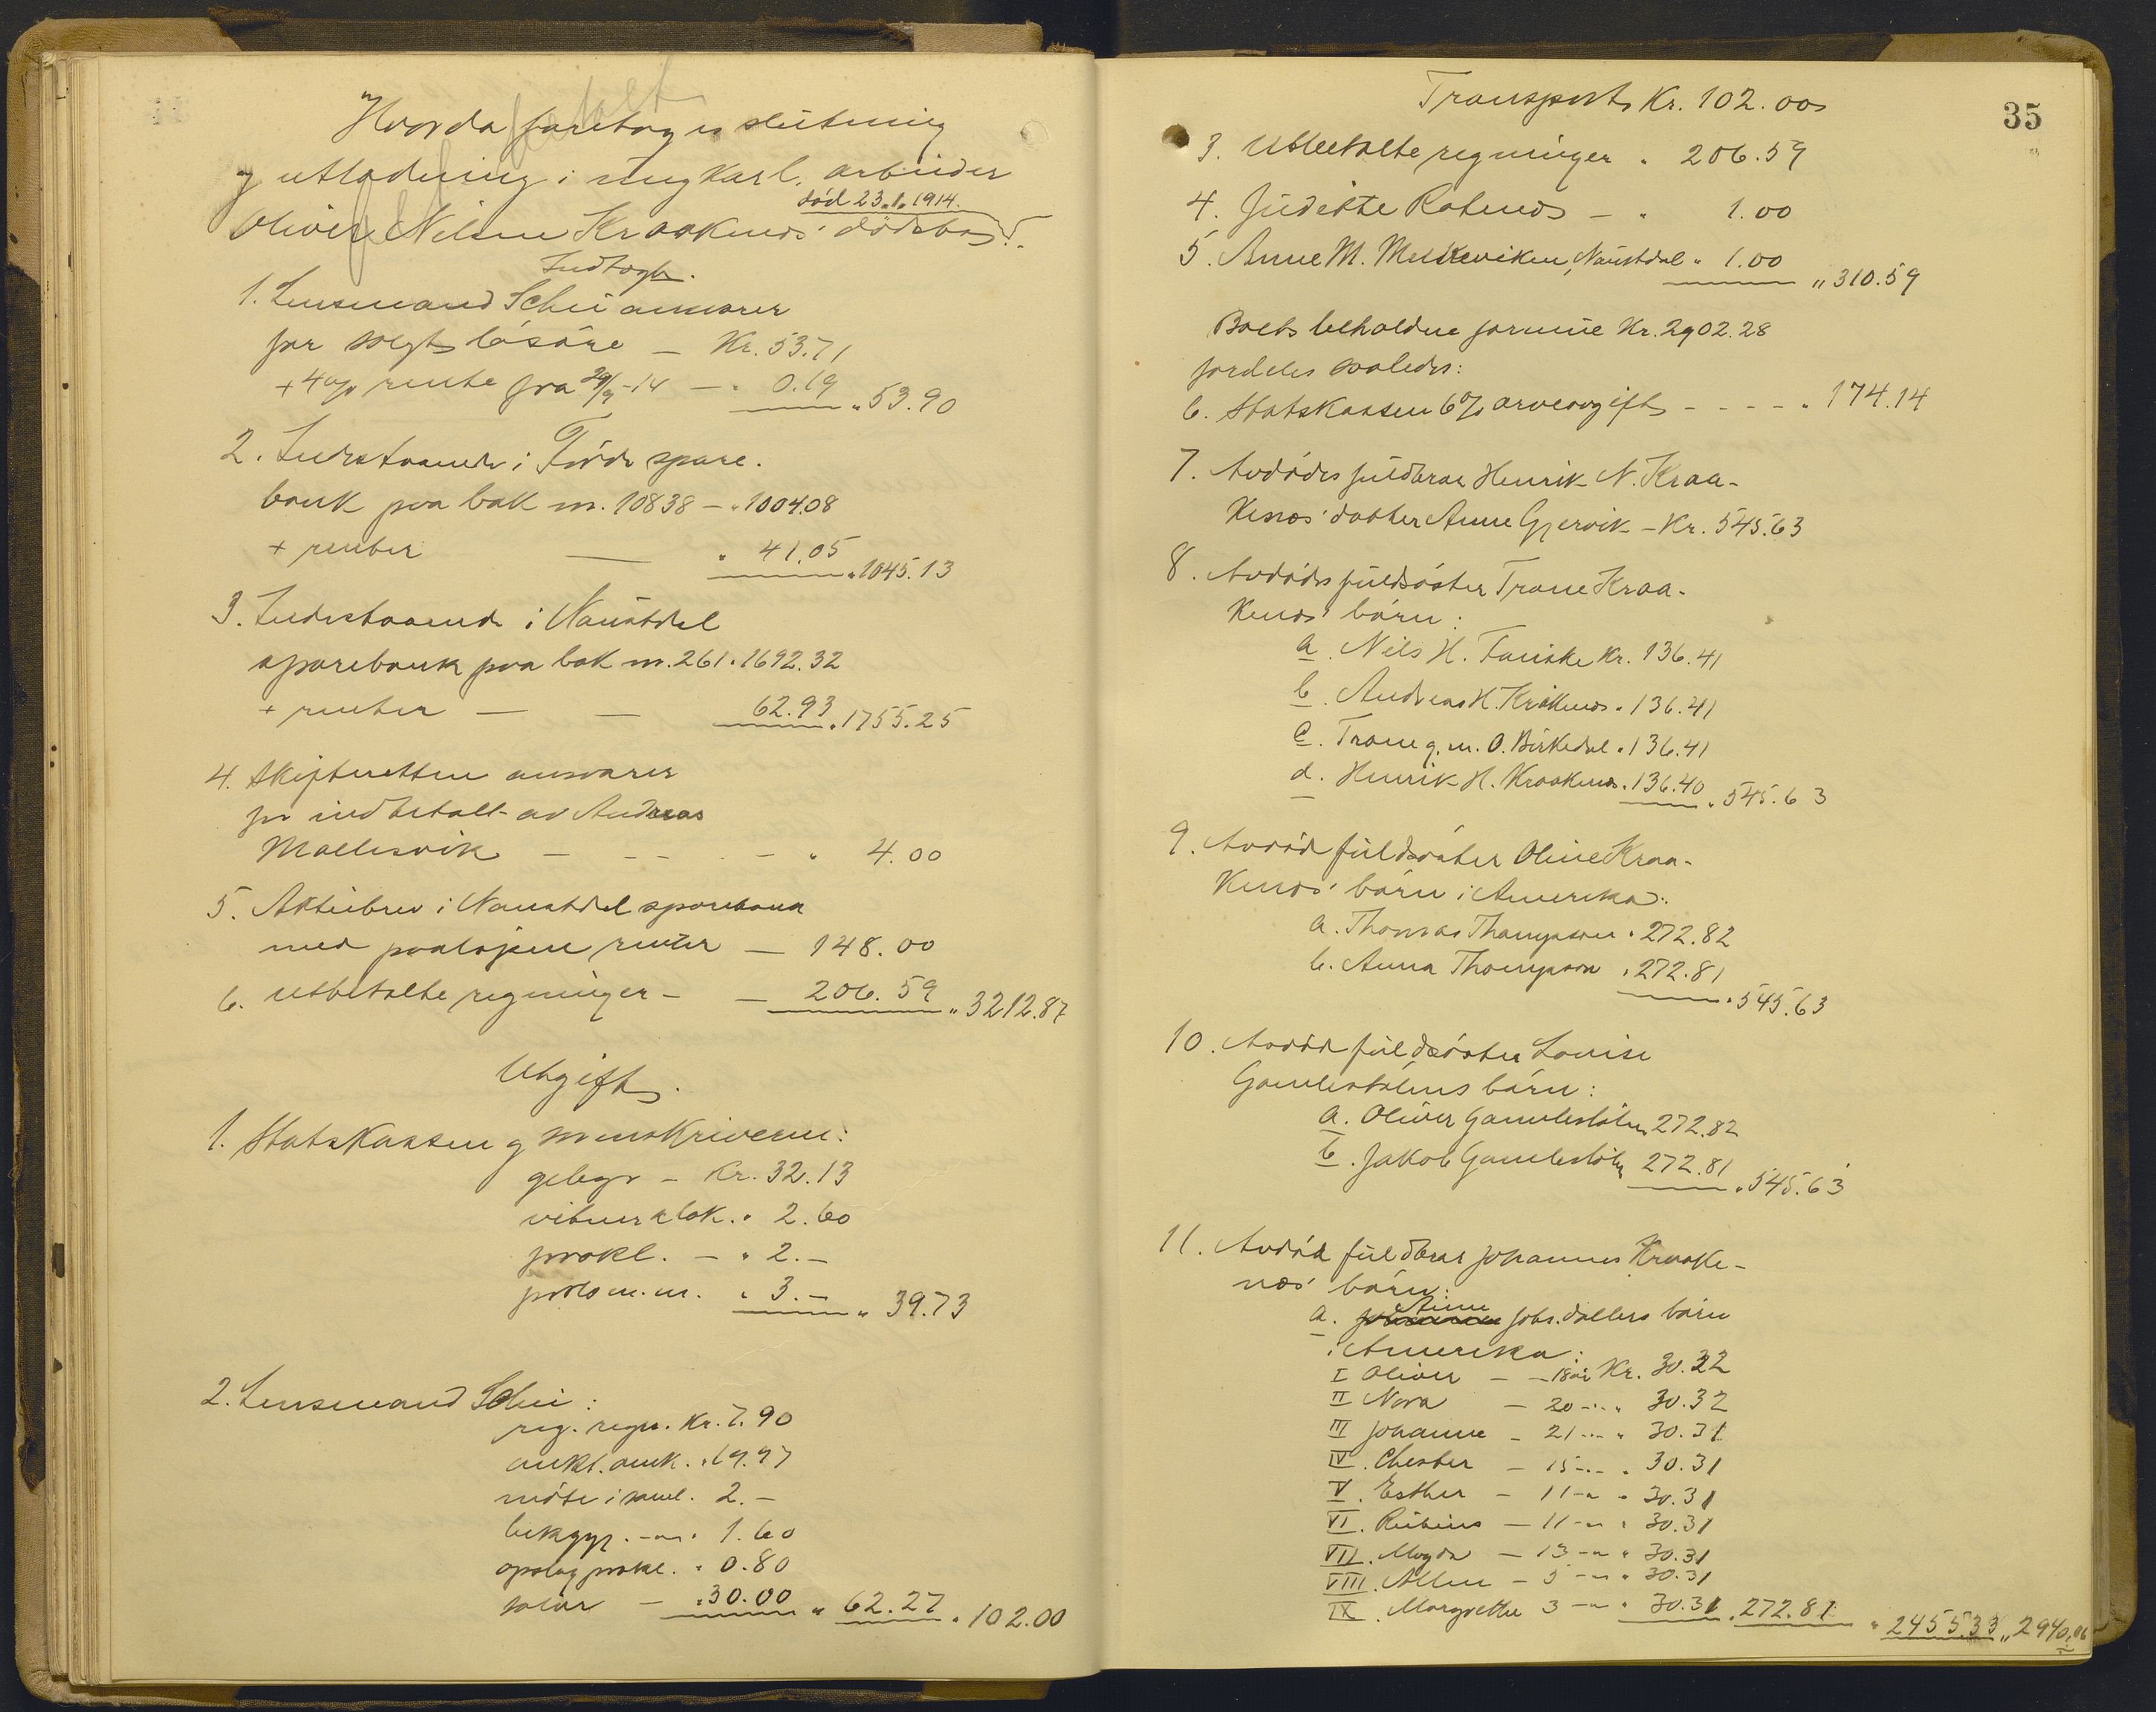 Hvorda foretoges slutning
og utlodning i ungkarl, arbeider
død 23.1.1914.
Oliver Nilsen Kraakenes' dødsbo.
Indtægt.
1. Lensmand Schei ansvarer
for solgt løsøre – Kr. 53.71
+ 4% rente fra 29/9-14 – " 0.19 " 53.90
2. Indestaaende i Förde spare-
bank paa bok nr. 10838 – " 1004.08
+ renter — " 41.05 " 1045.13
3. Indestaaende i Naustdal
sparebank paa bok nr. 261 " 1692.32
+ renter — — 62.93 " 1755.25
4. Skifteretten ansvarer
for indbetalt av Andreas
Mallesvik – – – – " 4.00
5. Aktiebrev i Naustdal sparebank
med paaløpne renter — 148.00
6. Utbetalte regninger – — 206.59 " 3212.87
Utgift.
1. Statskassen og sorenskriveren:
gebyr – Kr. 32.13
vitnerklok. " 2.60
prokl. – " 2.–
porto m.m. " 3.– " 39.73
2. Lensmand Schei:
reg. regn. Kr. 7.90
aukt. omk. " 19.97
møte i saml. 2.–
bekgjr. –"– " 1.60
opslag prokl. " 0.80
salær – " 30.00 " 62.27 " 102.00
35
Transport Kr. 102.00
3. Utbetalte regninger " 206.59
4. Judithe Ratenes – " 1.00
5. Anne M. Naustdal " 1.00 " 310.59
Boets beholdne formue Kr. 2902.28
fordeles saaledes:
6. Statskassen 6% arveavgift – – – – " 174.14
7. Avdødes fuldbror Henrik N. Kraa-
kenes' datter Anne Gjervik – Kr. 545.63
8. Avdødes fuldsøster Trone Kraa-
kenes' børn:
a. Nils H. Kr. 136.41
b. Andreas H. Kråkenes " 136.41
c. Trone g. m. O. Birkedal " 136.41
d. Henrik H. Kraakenes " 136.40 " 545.63
9. Avdød fuldsøster Oline Kraa-
kenes' børn i Amerika:
a. Thomas Thompson " 272.82
b. Anna Thompson " 272.81 " 545.63
10. Avdød fuldsøster Lovise
Gamlestølens børn:
a. Oliver Gamlestølen 272.82
b. Jakob Gamlestølen 272.81 " 545.63
11. Avdød fuldbror Johannes Kraake-
nes' børn:
Anne
a. Johs. datters børn
i Amerika:
I Oliver – – 18 år Kr. 30.32
II Nora – 20 –"– " 30.32
III Johanne – 21 –"– " 30.31
IV. Chester – 15 –"– " 30.31
V. Esther – 11 –"– " 30.31
VI. Rubins – 11 –"– " 30.31
VII. Magda – 13 –"– " 30.31
VIII. Allen – 5 –"– " 30.31
IX. Margrethe 3 –"– " 30.31 " 272.81 " 2455.33 " 2940.06